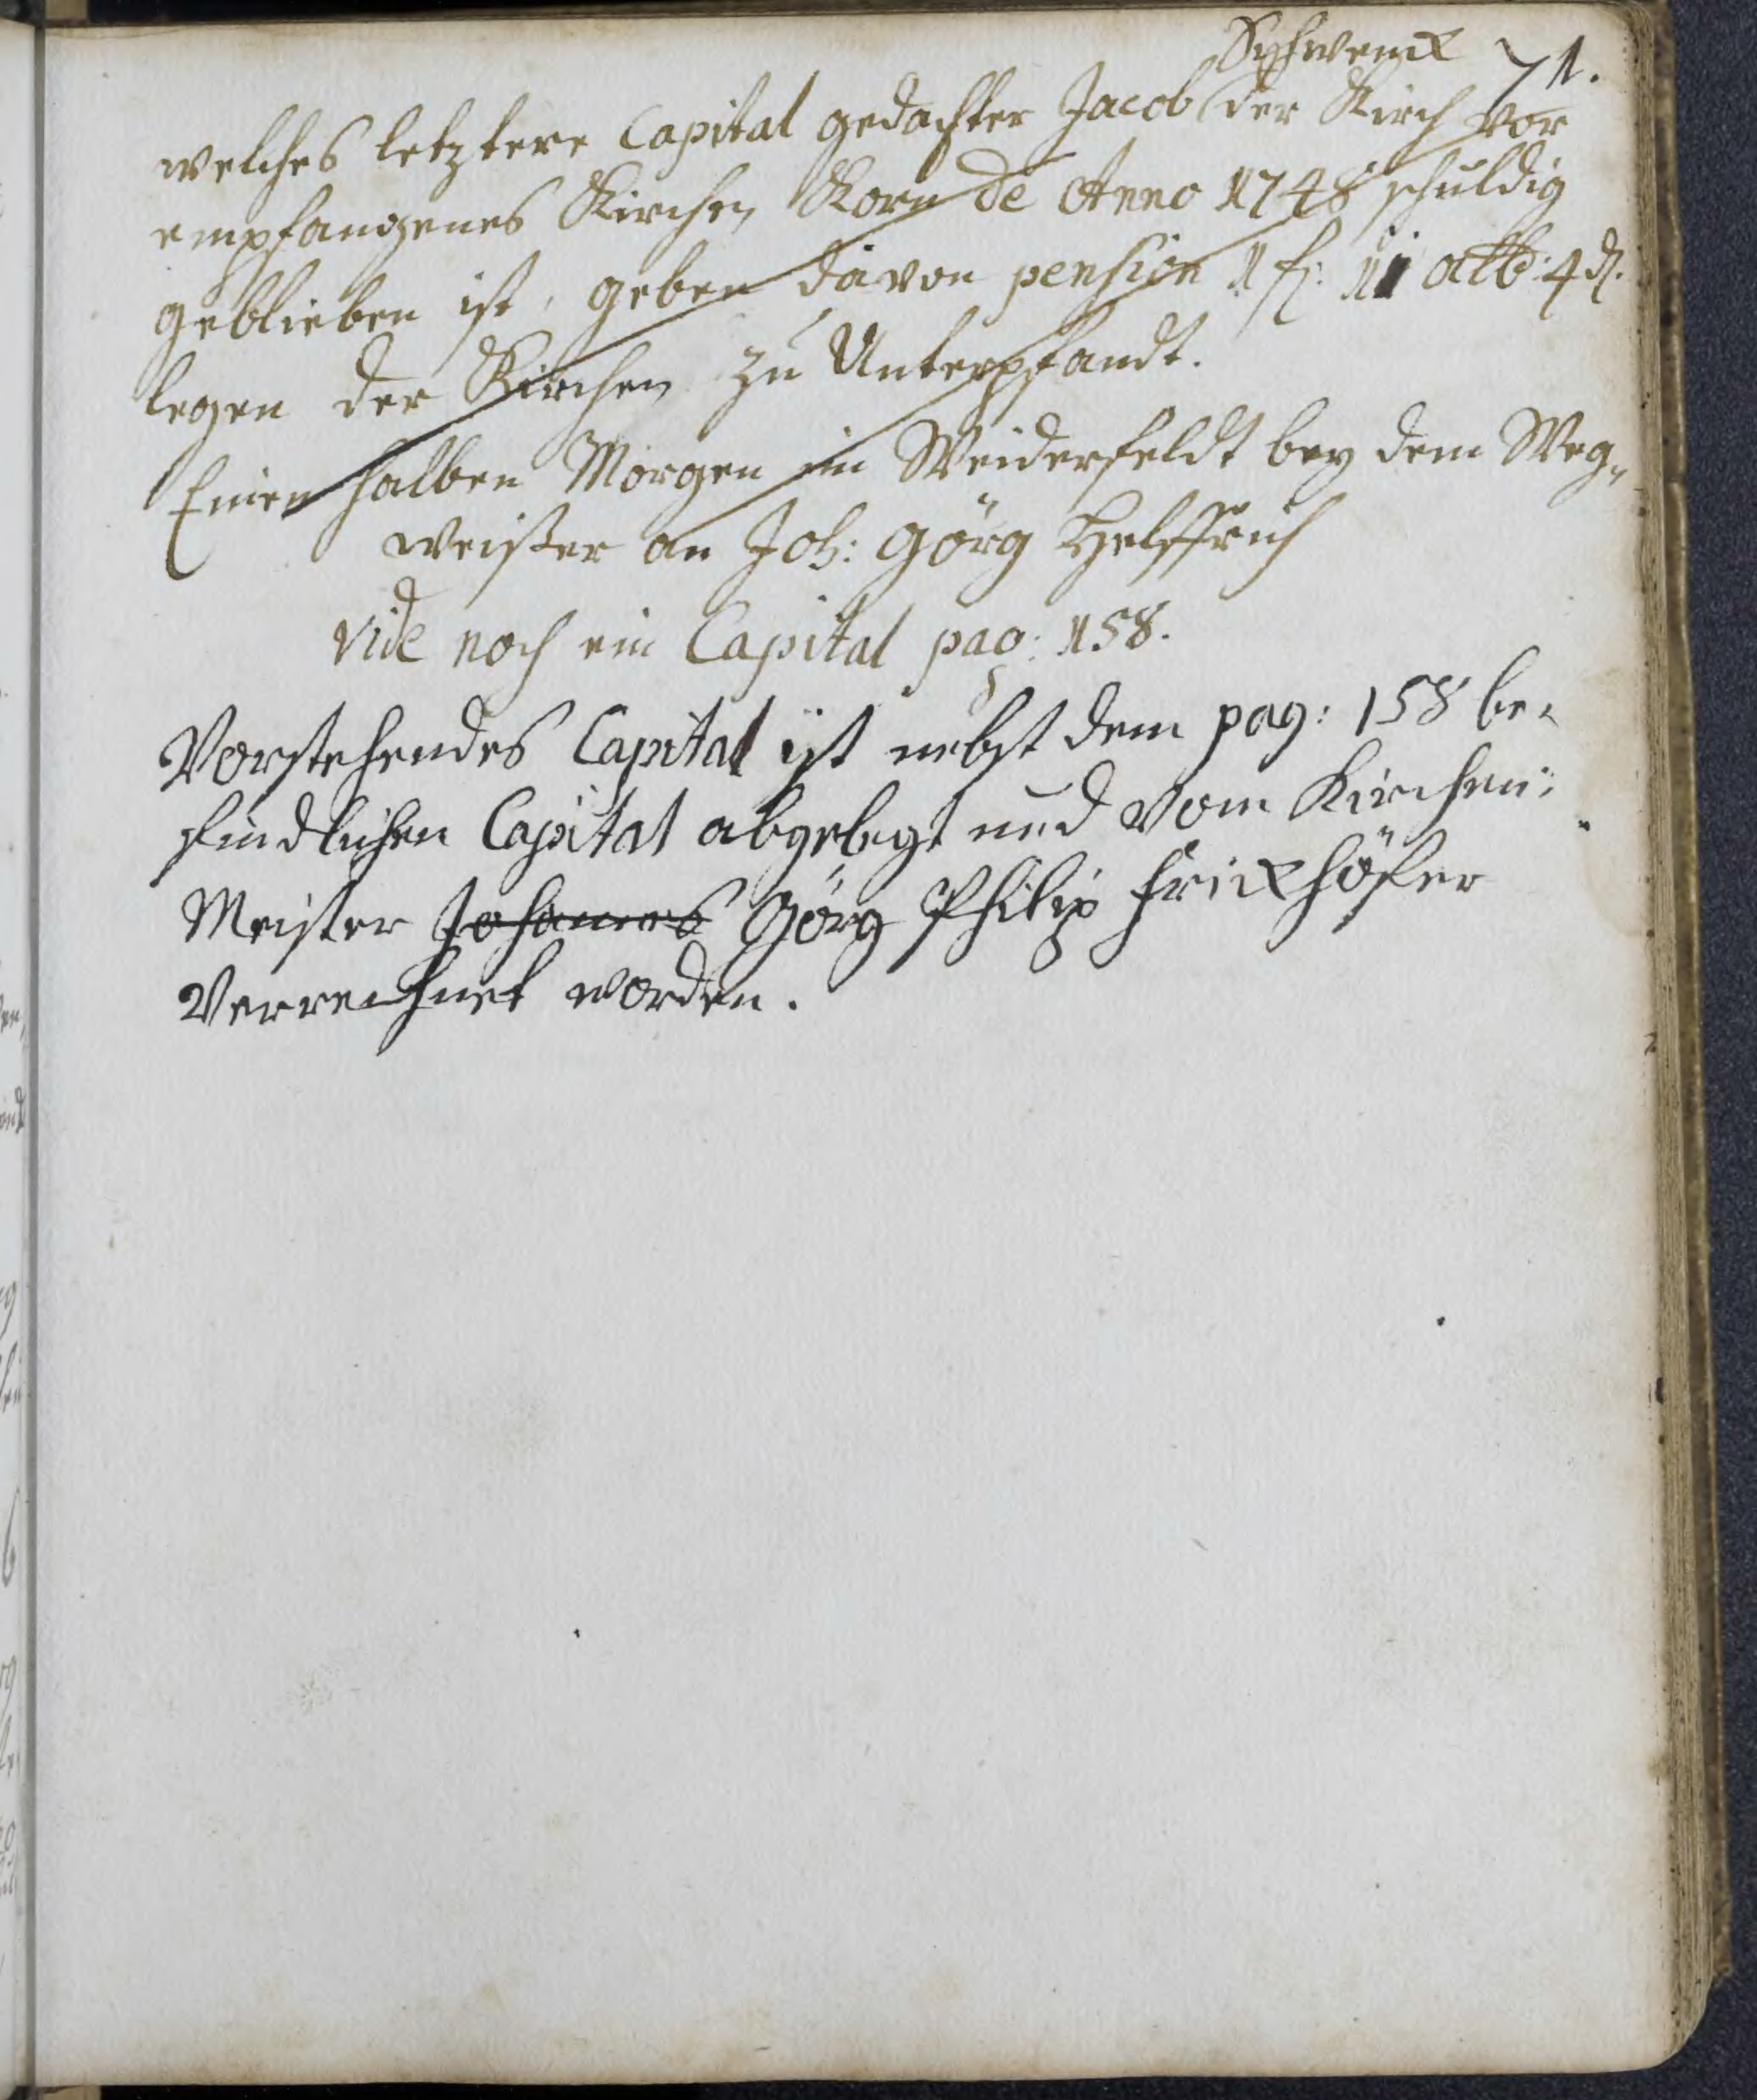 Schwenck 71.
welches letztere Capital gedachter Jacob der Kirch vor
empfangenes Kirchen Korn de Anno 1748 schuldig
geblieben ist, geben davon pension 1 fl: 11 alb: 4 d.
legen der Kirchen zu Unterpfandt.
Einen halben Morgen im Weiderfeldt bey dem Weg„
weißer an Joh: Görg Helffrich
vide noch ein Capital pag: 158.
Vorstehendes Capital ist nebst dem pag: 158 be-
findlichen Capital abgelegt und vom Kirchen-
Meister Johannes Görg Philip Frickhöfer
Verrechnet worden.